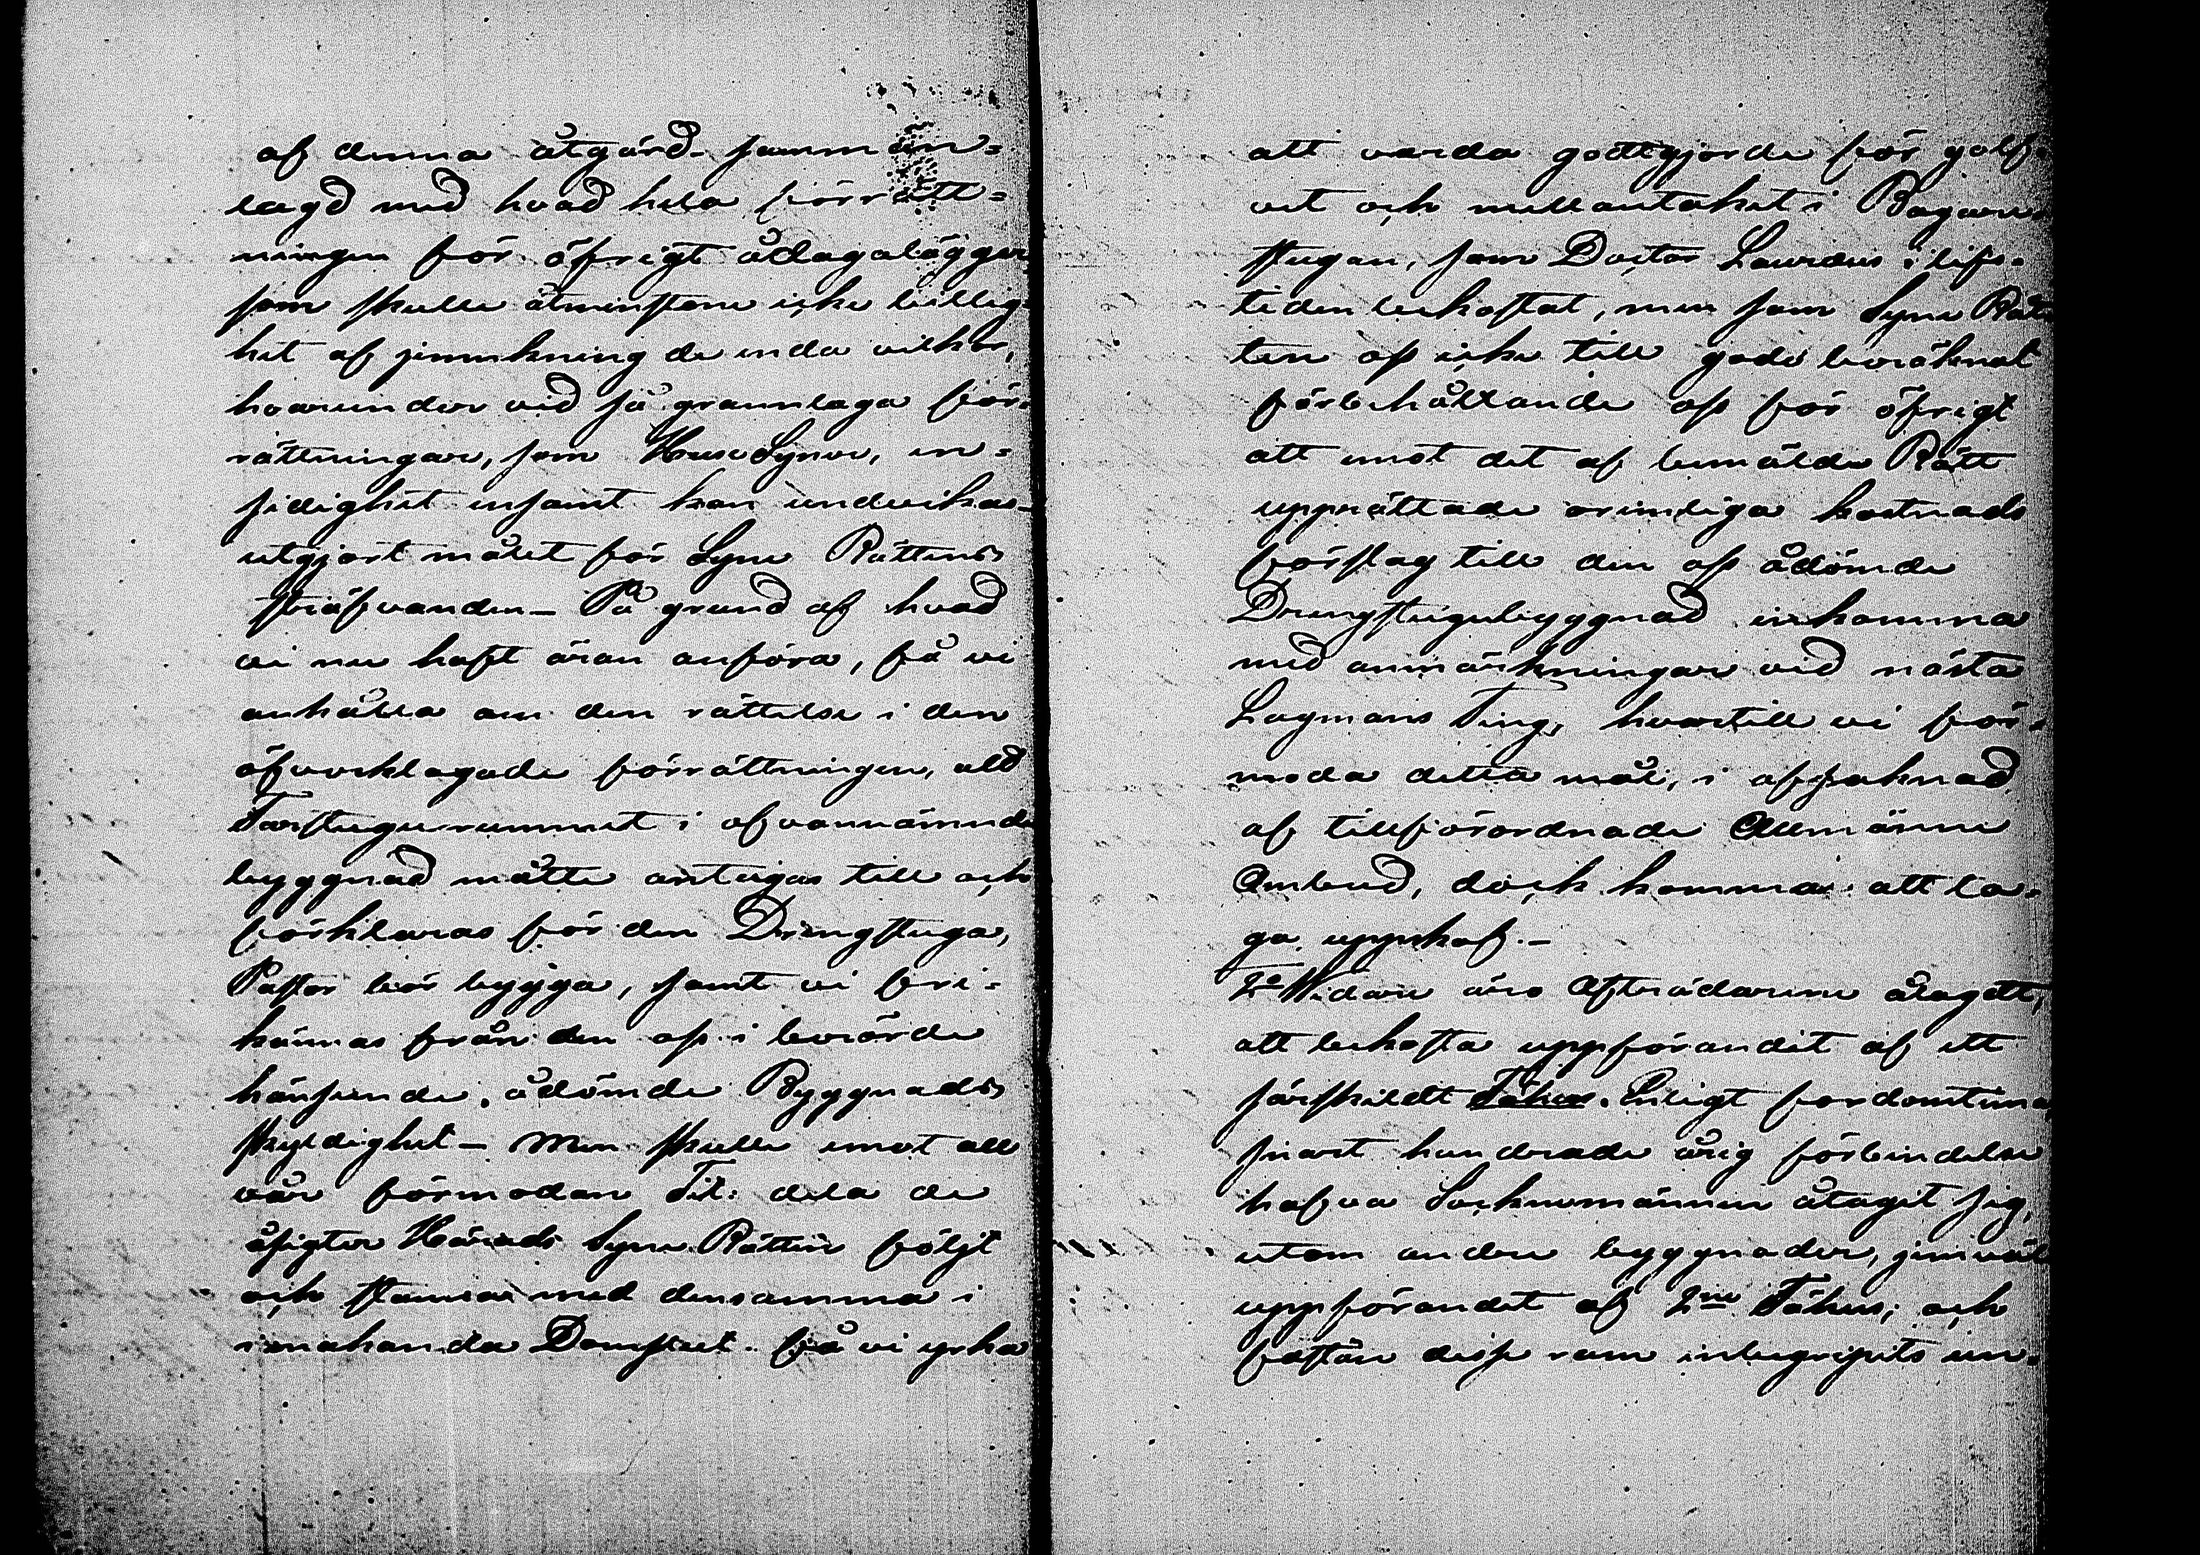 af denna åtgärd sammän=
lagd med hvad hela förrätt=
ningen för öfrigt ådagalägger,
som skulle åtminstone icke billig-
het af jemnkning de enda vilkor,
hvarunder vid så grannlaga för-
rättningar, som HusSyner, en=
sidighet ensamt kan undvikas
utgjort målet för Syne Rättens
sträfvanden – På grund af hvad
vi nu haft äran anföra, få vi
anhålla om den rättelse i den
öfverklagade förrättningen, att
Farstugurummet i ofvannämnde
byggnad måtte antagas till och
förklaras för den Drengstuga,
Pastor bör bygga, samt vi fri-
kännas från den oss i berörde
hänseende ådömde Byggnads
skyldighet – Men skulle emot all
vår förmodan Tit: dela de
åsigter Härads Syne Rätten följt
och stanna med densamma i
enahanda Domslut. få vi yrka
att varda godtgjorde för golf-
vet och mellantaket i Bagare-
stugan, som Doctor Lauræus i lifs-
tiden bekostat, men som Syne Rät-
ten oss icke till godo beräknat
förbehållande oss för öfrigt
att emot det af bemälde Rätt
upprättade orimliga kostnads
förslag till den oss ådömde
Drengstugubyggnad inkomma
med anmärkningar vid nästa
Lagmans Ting, hvartill vi för-
moda detta mål, i afsaknad
af tillförordnade Allmänne
Ombud, dock komma att ta-
ga uppskof. –
2o Vidare äro Afträdarene ålagdt,
att bekosta uppförandet af ett
särskildt Fähus. Enligt fordomtima
snart hundrade årig förbindelse
hafva Socknemännen åtagit sig,
utom andre byggnader, jemväl
uppförandet af 2ne Fähus; och
fastän desse rum inbegripits un-